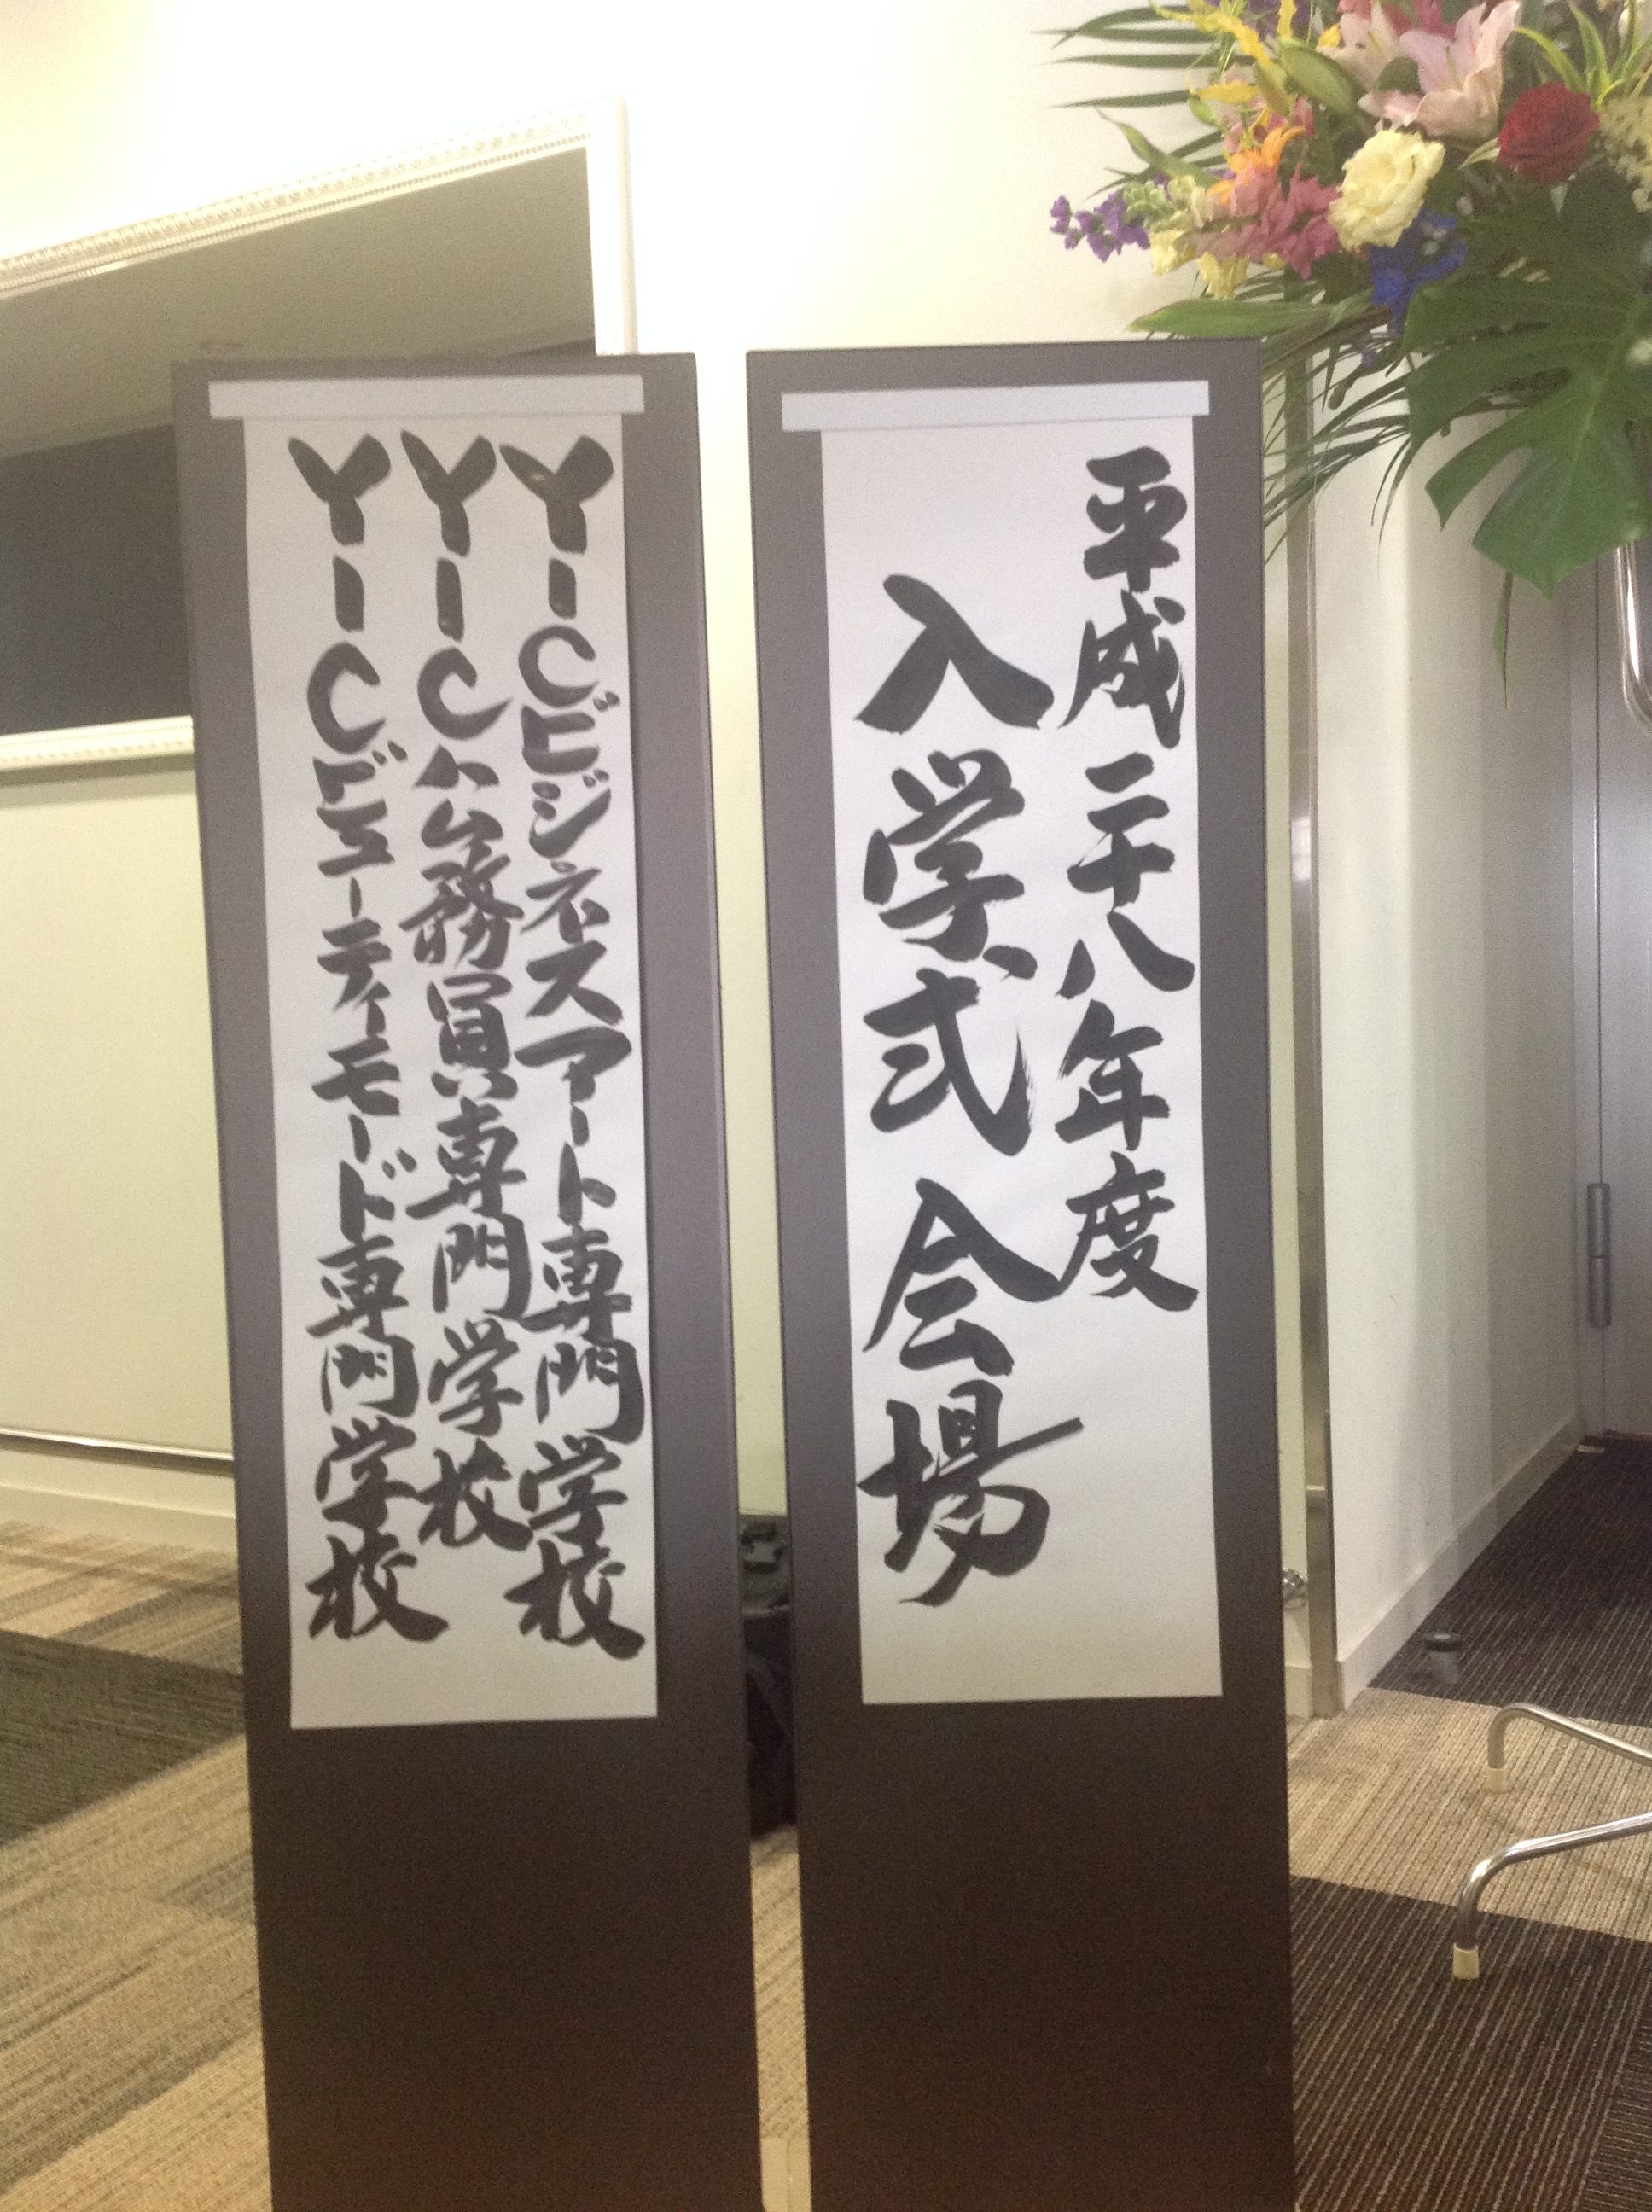 平成二十八年度
入学式会場
YICビジネスアート専門学校
YIC公務員専門学校
YICビューティーモード専門学校